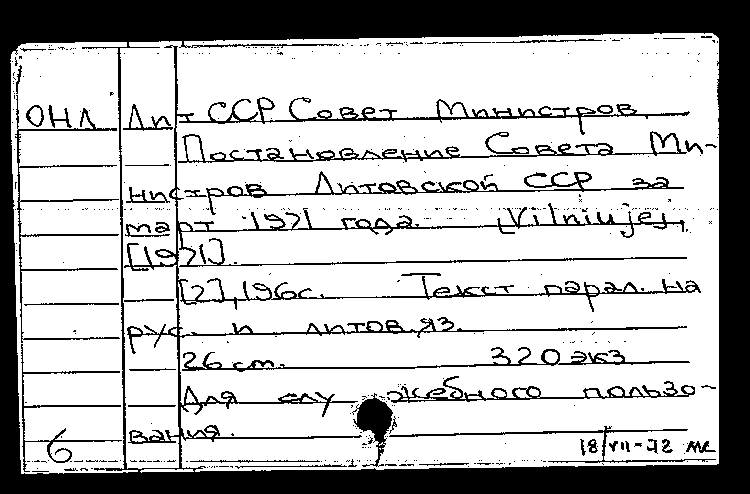 ОНЛ Лит ССР Совет Министров.
Постановление Совета Ми-
нистров Литовской ССР за
март 1971 года. [Vilniuje],
[1971].
[2], 196 с. Текст парал. на
рус. и литов. яз.
26 cm. 320 экз
Для служебного пользо-
вания.
6 18/VII-72 мс